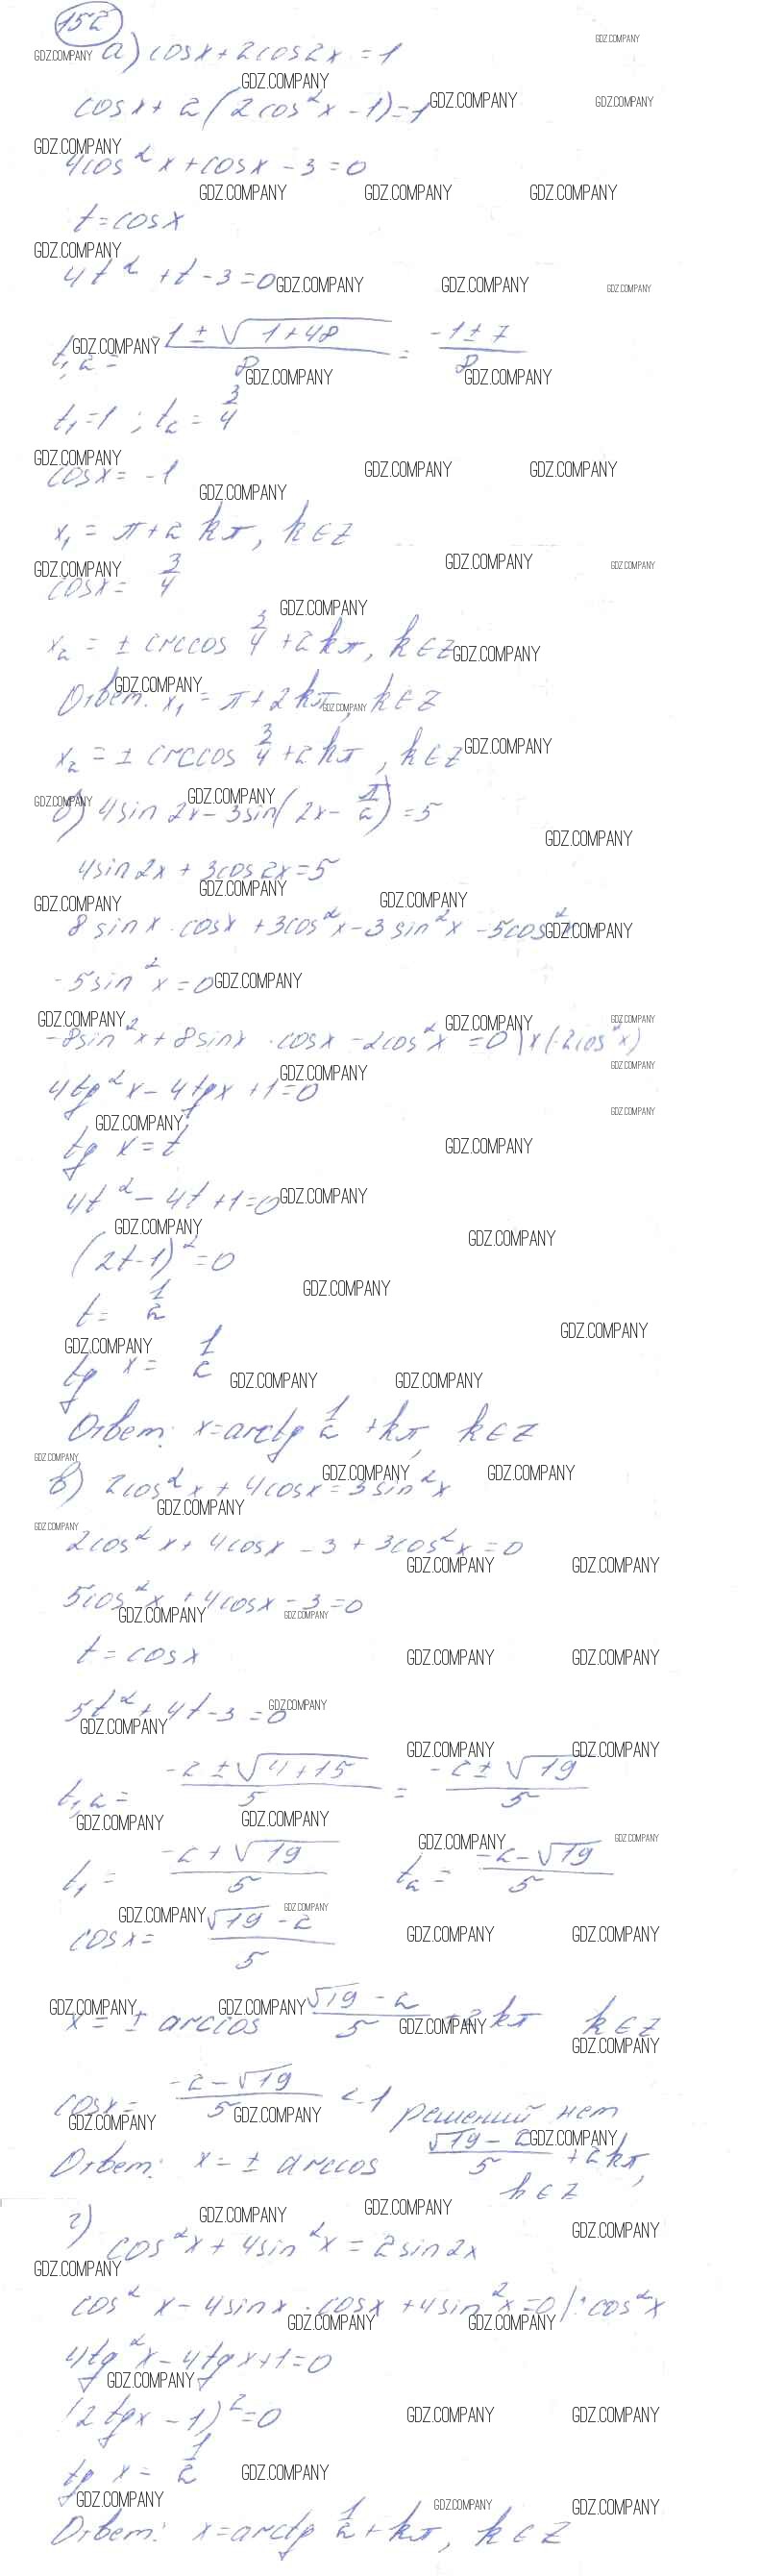 152
а) cosx + 2cos2x = 1
cosx + 2(2cos²x - 1) = 1
4cos²x + cosx - 3 = 0
t = cosx
4t² + t - 3 = 0
t₁,₂ = 1 ± √(1+48) / 8 = -1 ± 7 / 8
t₁ = 1 ; t₂ = 3/4
cosx = -1
x₁ = π + 2kπ, k∈Z
cosx = 3/4
x₂ = ± arccos 3/4 + 2kπ, k∈Z
Ответ: x₁ = π + 2kπ, k∈Z
x₂ = ± arccos 3/4 + 2kπ, k∈Z
б) 4sin2x - 3sin(2x - π/2) = 5
4sin2x + 3cos2x = 5
8sinx · cosx + 3cos²x - 3sin²x - 5cos²x
- 5sin²x = 0
-8sin²x + 8sinx · cosx - 2cos²x = 0 | x(-2cos²x)
4tg²x - 4tgx + 1 = 0
tg x = t
4t² - 4t + 1 = 0
(2t - 1)² = 0
t = 1/2
tg x = 1/2
Ответ: x = arctg 1/2 + kπ, k∈Z
в) 2cos²x + 4cosx = 3sin²x
2cos²x + 4cosx - 3 + 3cos²x = 0
5cos²x + 4cosx - 3 = 0
t = cosx
5t² + 4t - 3 = 0
t₁,₂ = -2 ± √(4+15) / 5 = -2 ± √19 / 5
t₁ = -2 + √19 / 5 t₂ = -2 - √19 / 5
cosx = √19 - 2 / 5
x = ± arccos √19 - 2 / 5 + 2kπ k∈Z
cosx = -2 - √19 / 5 < -1 решений нет
Ответ: x = ± arccos √19 - 2 / 5 + 2kπ,
k∈Z
г) cos²x + 4sin²x = 2sin2x
cos²x - 4sinx · cosx + 4sin²x = 0 | : cos²x
4tg²x - 4tgx + 1 = 0
(2tgx - 1)² = 0
tg x = 1/2
Ответ: x = arctg 1/2 + kπ, k∈Z
GDZ.COMPANY